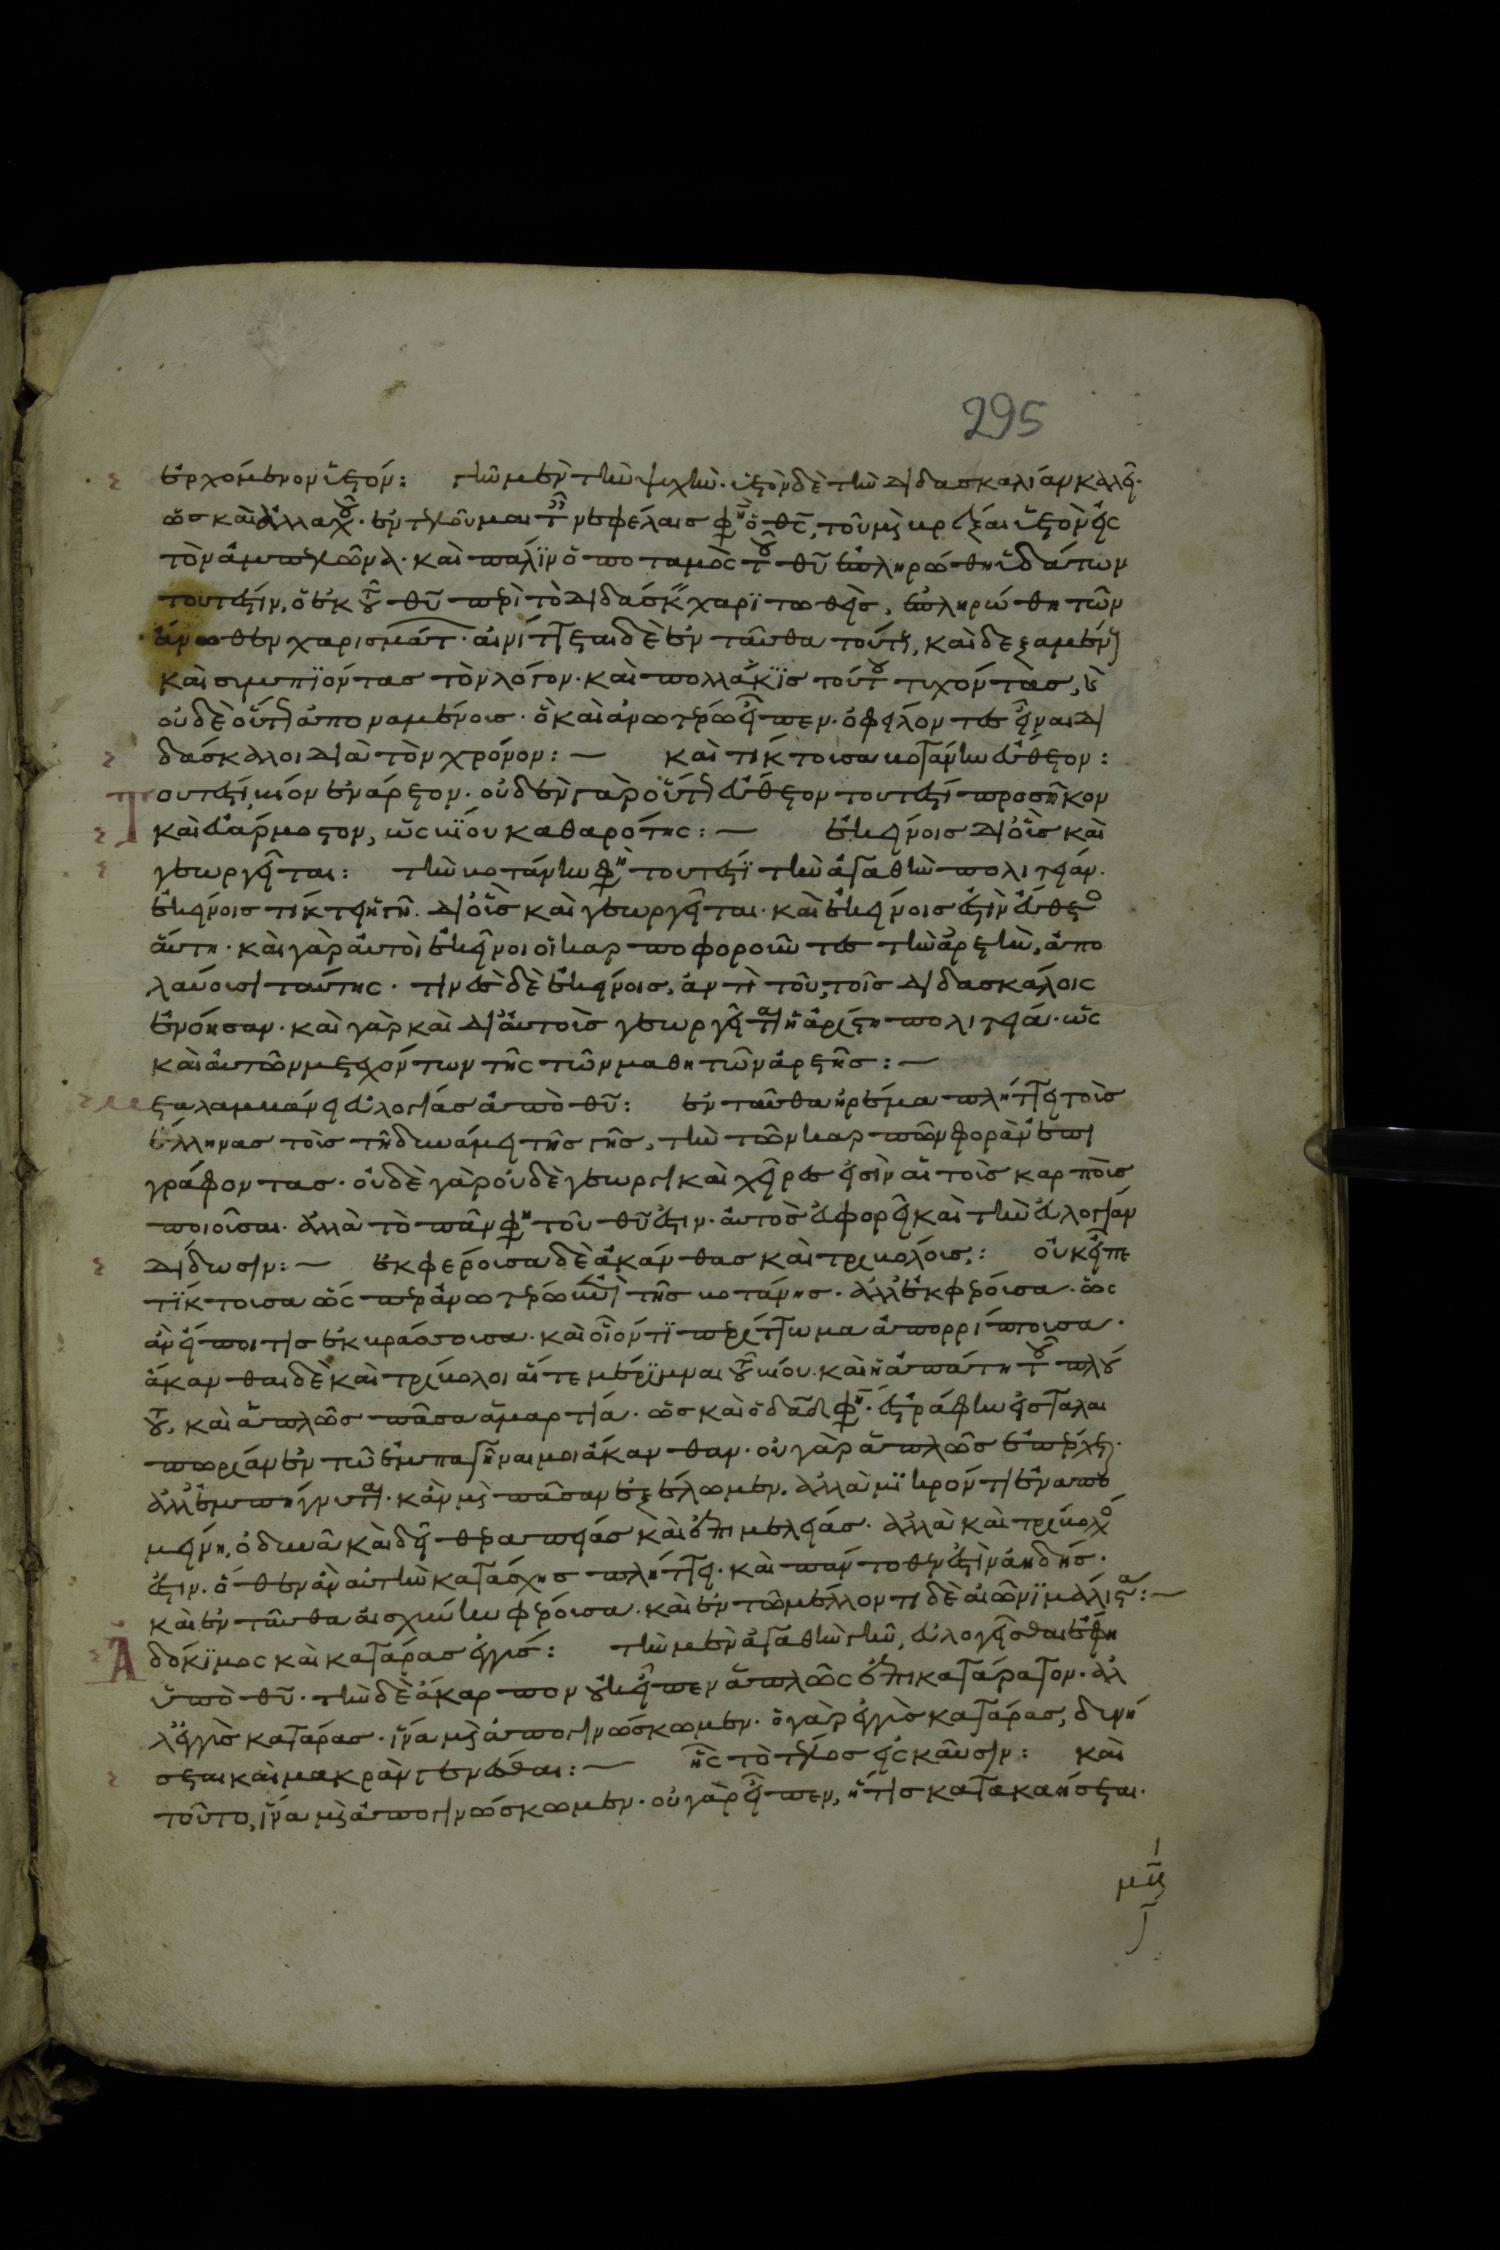 295
ἐρχόμενον ὑετόν: γῆν μὲν τὴν ψυχήν. ὑετὸν δὲ τὴν διδασκαλίαν καλεῖ.
ὡς καὶ ἀλλαχοῦ. ἐντελοῦμαι ταῖς νεφέλαις φησὶν ὁ θς, τοῦ μὴ βρέξαι ὑετὸν εἰς
τὸν ἀμπελῶνα. καὶ πάλιν ὁ ποταμὸς τοῦ θῦ ἐπληρώθη ὑδάτων
τουτέστιν, ὁ ἐκ τοῦ θῦ περὶ τὸ διδάσκειν χαριτωθεὶς, ἐπληρώθη τῶν
ἄνωθεν χαρισμάτων. αἰνίττεται δὲ ἐνταῦθα τούτους, καὶ δεξαμένους
καὶ συμπιόντας τὸν λόγον. καὶ πολλάκις τούτου τυχόντας, καὶ
οὐδὲ οὕτως ἀποναμένους. ὃ καὶ ἀνωτέρω εἶπεν. ὀφείλοντες εἶναι δι
δάσκαλοι διὰ τὸν χρόνον: — καὶ τίκτουσα βοτάνην εὔθετον:
Τουτέστι, βίον ἐνάρετον. οὐδὲν γὰρ οὕτως εὔθετον τουτέστι προσῆκον
καὶ εὐάρμοστον, ὡς βίου καθαρότης: — ἐκείνοις δι' οὓς καὶ
γεωργεῖται: τὴν βοτάνην φησὶ τουτέστι τὴν ἀγαθὴν πολιτείαν.
ἐκείνοις τίκτει ἡ γῆ. δι' οὓς καὶ γεωργεῖται. καὶ ἐκείνοις ἐστὶν εὔθετος
αὕτη. καὶ γὰρ αὐτοὶ ἐκεῖνοι οἱ καρποφοροῦντες τὴν ἀρετὴν, ἀπο
λαύουσι ταύτης. τινὲς δὲ ἐκείνοις, ἀντὶ τοῦ, τοῖς διδασκάλοις
ἐνόησαν. καὶ γὰρ καὶ δι' αὐτοὺς γεωργεῖται ἡ ἀρίστη πολιτεία. ὡς
καὶ αὐτῶν μετεχόντων τῆς τῶν μαθητῶν ἀρετῆς: —
μεταλαμβάνει εὐλογίας ἀπὸ θῦ: ἐνταῦθα ἠρέμα πλήττει τοὺς
ἕλληνας τοὺς τῇ δυνάμει τῆς γῆς, τὴν τῶν καρπῶν φορὰν ἐπι
γράφοντας. οὐδὲ γὰρ οὐδὲ γεωργικαὶ χεῖρες εἰσὶν αἱ τοὺς καρποὺς
ποιοῦσαι. ἀλλὰ τὸ πᾶν φησὶ τοῦ θῦ ἐστιν. αὐτὸς εὐφορεῖ καὶ τὴν εὐλογίαν
δίδωσιν: — ἐκφέρουσα δὲ ἀκάνθας καὶ τριβόλους,: οὐκ εἶπε
τίκτουσα ὡς περ ἀνωτέρω ἐπὶ τῆς βοτάνης. ἀλλ' ἐκφέρουσα. ὡς
ἂν εἴποι τις ἐκβράσσουσα. καὶ οἱονεί τι περίττωμα ἀπορρίπτουσα.
ἄκανθαι δὲ καὶ τρίβολοι αἵ τε μέριμναι τοῦ βίου. καὶ ἡ ἀπάτη τοῦ πλού
του, καὶ ἁπλῶς πᾶσα ἁμαρτία. ὡς καὶ ὁ δᾱδ φησίν. ἐστράφην εἰς ταλαι
πωρίαν ἐν τῷ ἐμπαγῆναί μοι ἄκανθαν. οὐ γὰρ ἁπλῶς ἐπέρχεται.
ἀλλ' ἐμπήγνυται. κἂν μὴ πᾶσαν ἐξέλωμεν. ἀλλὰ μικρόν τι ἐναπο
μείνῃ, ὀδυνᾷ καὶ δεῖ θεραπείας καὶ ἐπιμελείας. ἀλλὰ καὶ τρίβολος
ἐστιν. ὅθεν ἂν αὐτὴν κατάσχῃς πλήττει. καὶ πάντοθεν ἐστὶν ἀηδής.
καὶ ἐνταῦθα αἰσχύνην φέρουσα. καὶ ἐν τῷ μέλλοντι δὲ αἰῶνι μάλιστα: —
Ἀδόκιμος καὶ κατάρας ἐγγύς: τὴν μὲν ἀγαθὴν γῆν, εὐλογεῖσθαι ἔφη
ὑπὸ θῦ. τὴν δὲ ἄκαρπον οὐκ εἶπεν ἁπλῶς ὅτι κατάρατον. ἀλ
λ' ἐγγὺς κατάρας. ἵνα μὴ ἀπογινώσκωμεν. ὁ γὰρ ἐγγὺς κατάρας, δυνή
σεται καὶ μακρὰν γενέσθαι: — ἧς τὸ τέλος εἰς καῦσιν: καὶ
τοῦτο, ἵνα μὴ ἀπογινώσκωμεν. οὐ γὰρ εἶπεν, ἥτις κατακαήσεται.